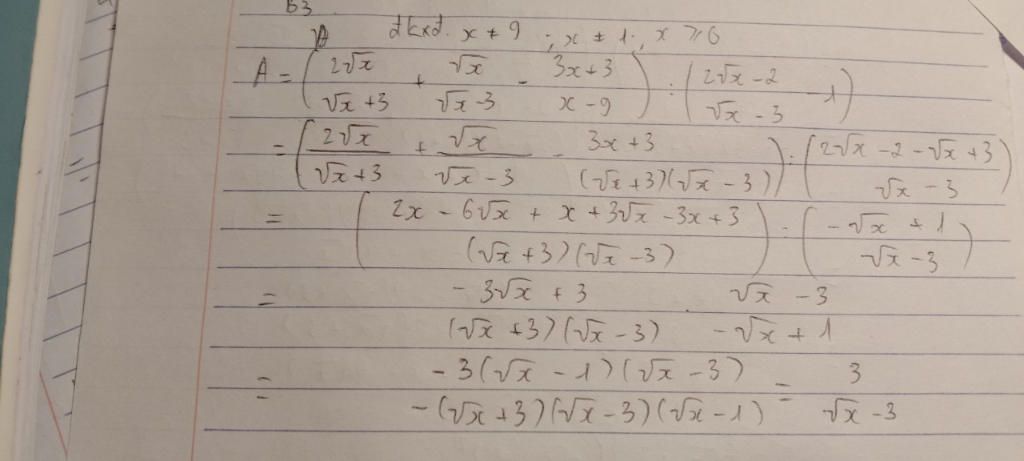 B3
đkxđ: x ≠ 9 ; x ≠ 1 ; x ≥ 0
A = (2√x/(√x + 3) + √x/(√x - 3) - (3x + 3)/(x - 9)) : ((2√x - 2)/(√x - 3) - 1)
= (2√x/(√x + 3) + √x/(√x - 3) - (3x + 3)/((√x + 3)(√x - 3))) : ((2√x - 2 - √x + 3)/(√x - 3))
= ((2x - 6√x + x + 3√x - 3x + 3)/((√x + 3)(√x - 3))) : ((-√x + 1)/(√x - 3))
= (-3√x + 3)/((√x + 3)(√x - 3)) . (√x - 3)/(-√x + 1)
= (-3(√x - 1)(√x - 3))/(-(√x + 3)(√x - 3)(√x - 1)) = 3/(√x - 3)